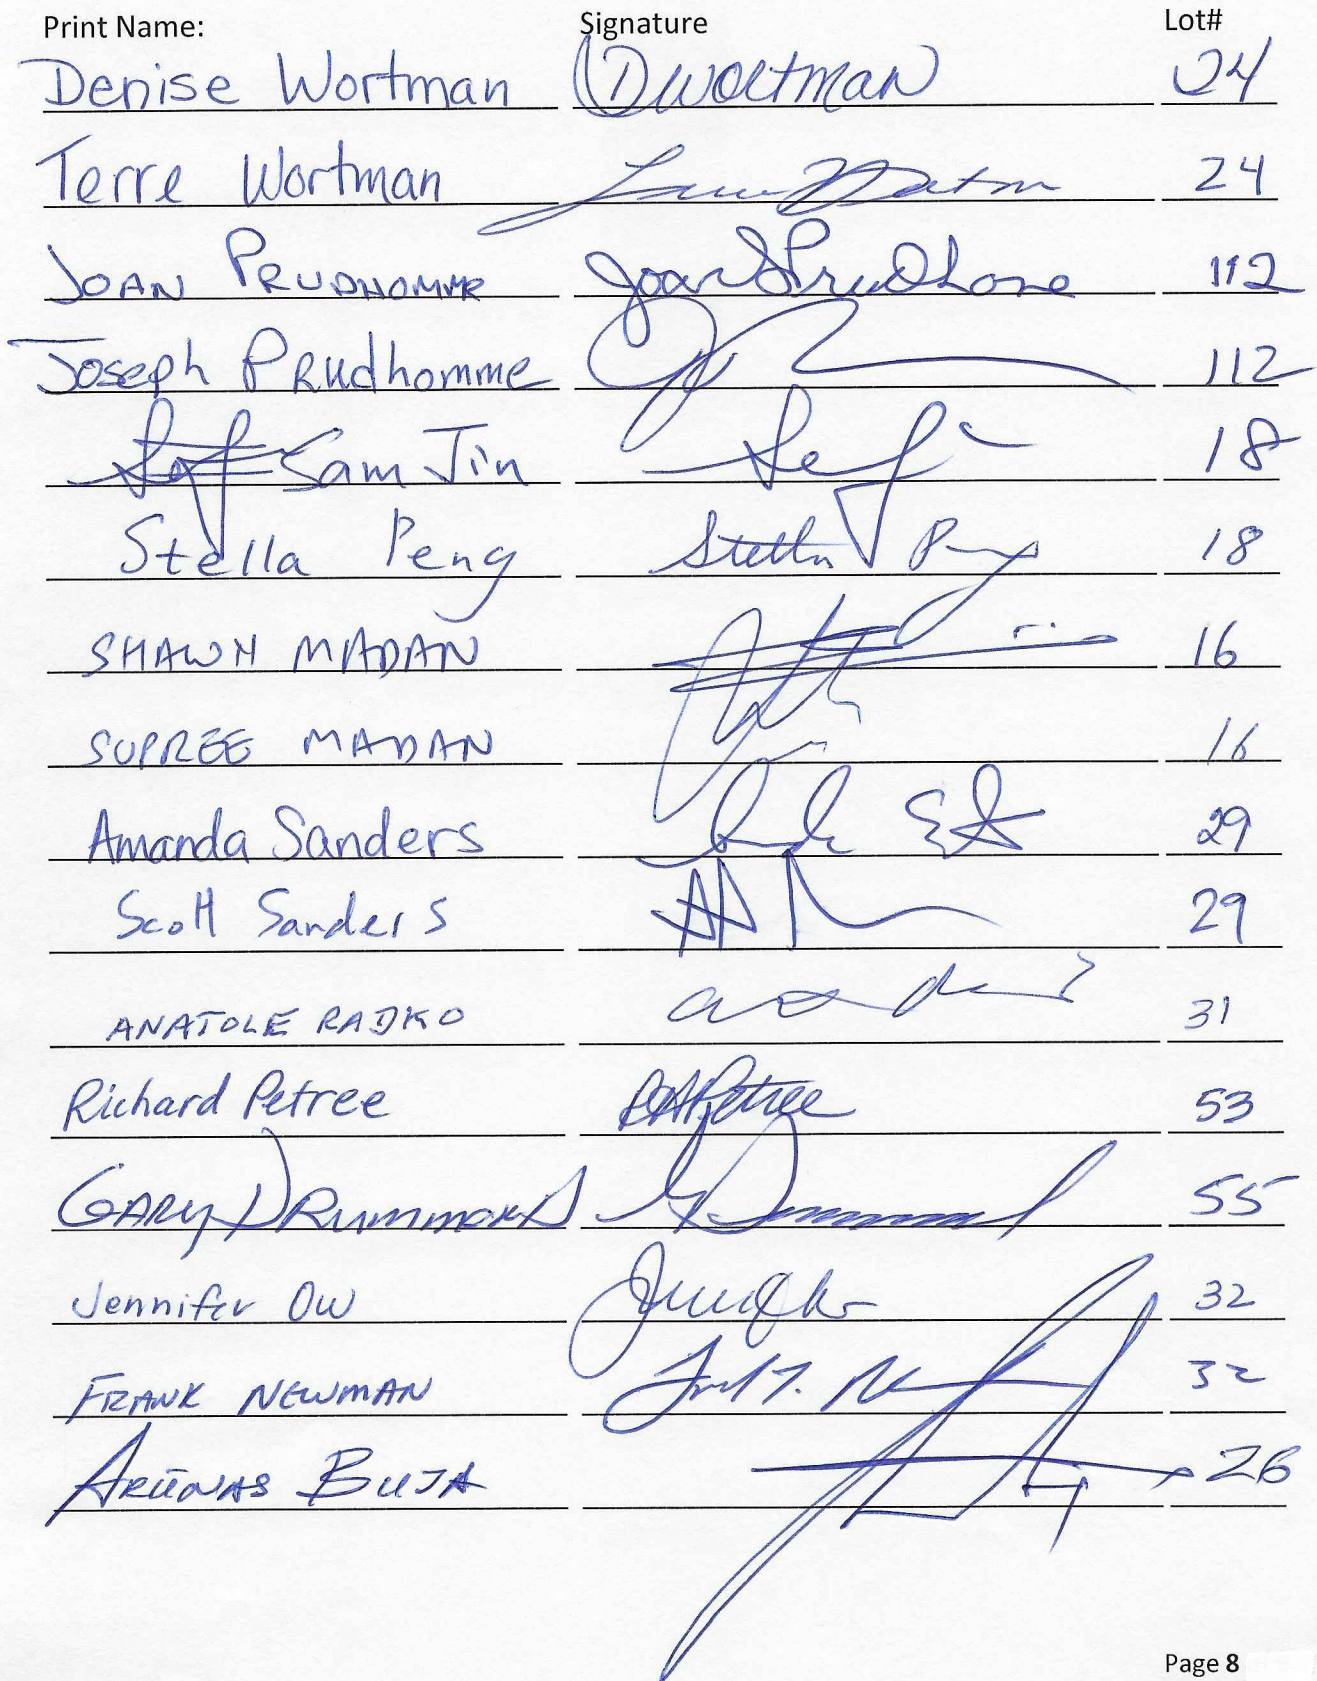 Print Name: Signature Lot#
Denise Wortman DWortman 24
Terre Wortman 24
JOAN PRUDHOMME Joan Prudhome 112
Joseph PRudhomme 112
Sam Jin 18
Stella Peng Stella Peng 18
SHAWN MADAN 16
SUPREE MADAN 16
Amanda Sanders 29
Scott Sanders 29
ANATOLE RADKO 31
Richard Petree RAPetree 53
GARY DRUMMOND 55
Jennifer Ow 32
FRANK NEWMAN 32
ARŪNAS BUJA 26
Page 8